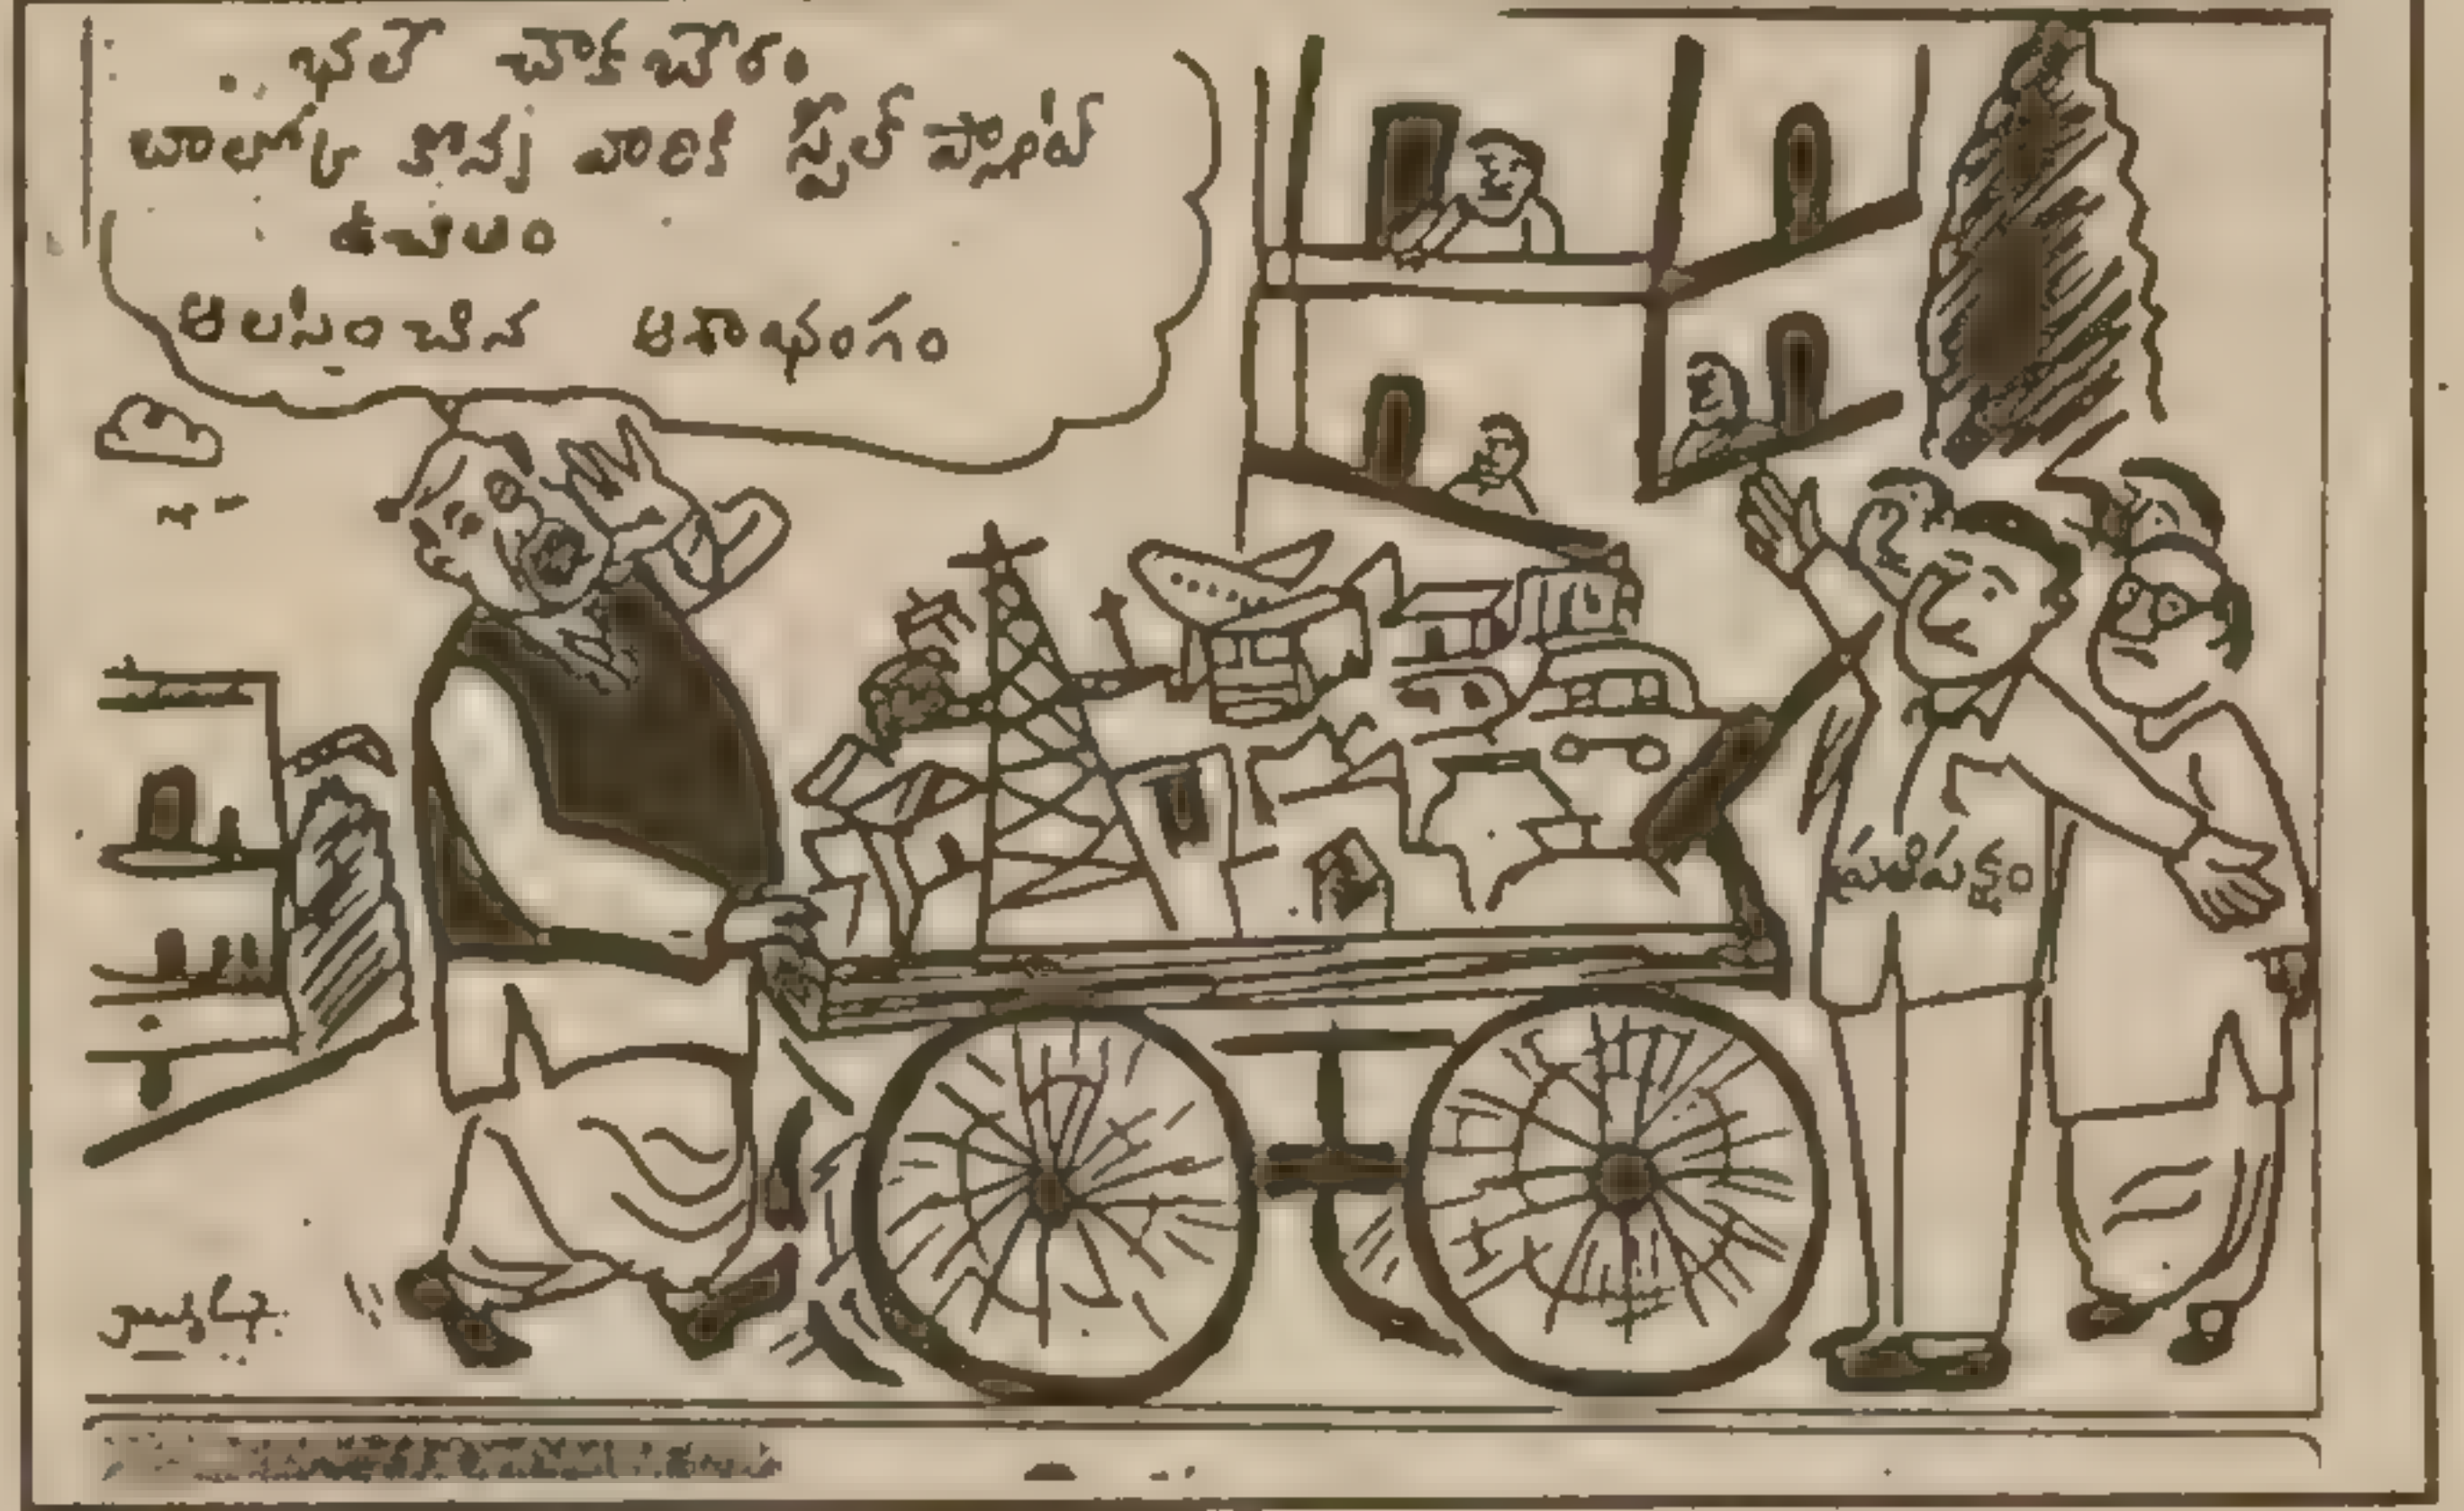 భలే చౌక బేరం
బాల్కో కొన్న వారికి స్టీల్ ప్లాంట్
ఉచితం
ఆలసించిన ఆశాభంగం
ప్రతిపక్షం